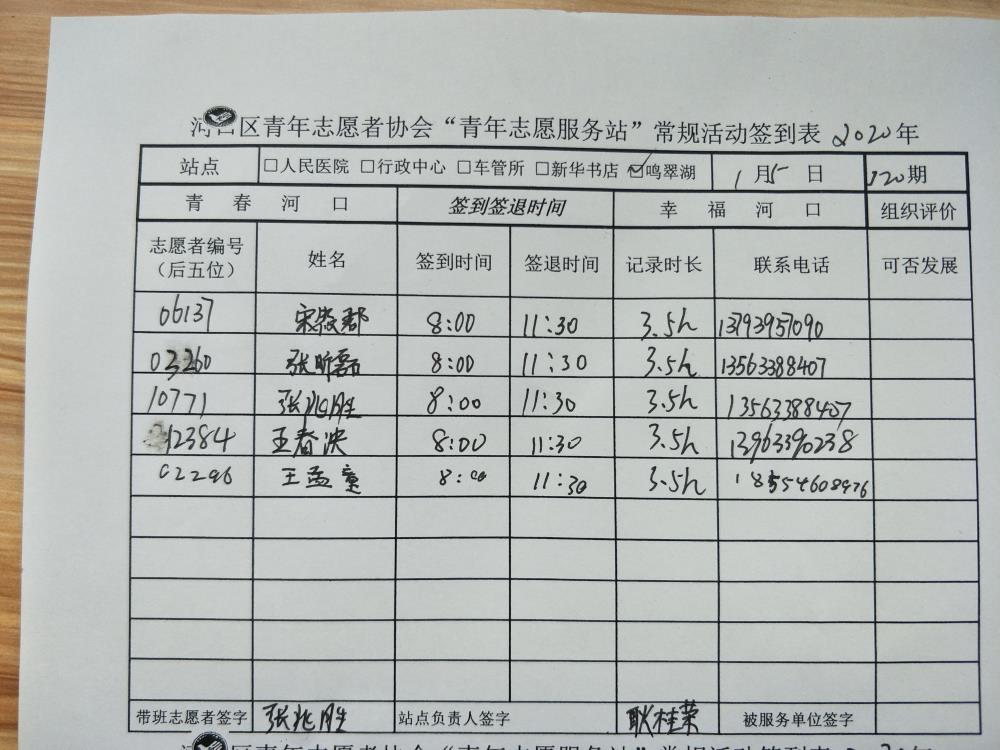 河口区青年志愿者协会“青年志愿服务站”常规活动签到表 2020年
站点 □人民医院 □行政中心 □车管所 □新华书店 ☑鸣翠湖 1月5日 120期
青春河口 签到签退时间 幸福河口 组织评价
志愿者编号（后五位） 姓名 签到时间 签退时间 记录时长 联系电话 可否发展
06137 8:00 11:30 3.5h 13793957090
03260 张昕磊 8:00 11:30 3.5h 13563388407
10771 张兆胜 8:00 11:30 3.5h 13563388407
12384 王春泱 8:00 11:30 3.5h 13963390238
02296 王孟童 8:00 11:30 3.5h 18554608976
带班志愿者签字 张兆胜 站点负责人签字 耿桂荣 被服务单位签字
区青年志愿者协会“青年志愿服务站”常规活动签到表